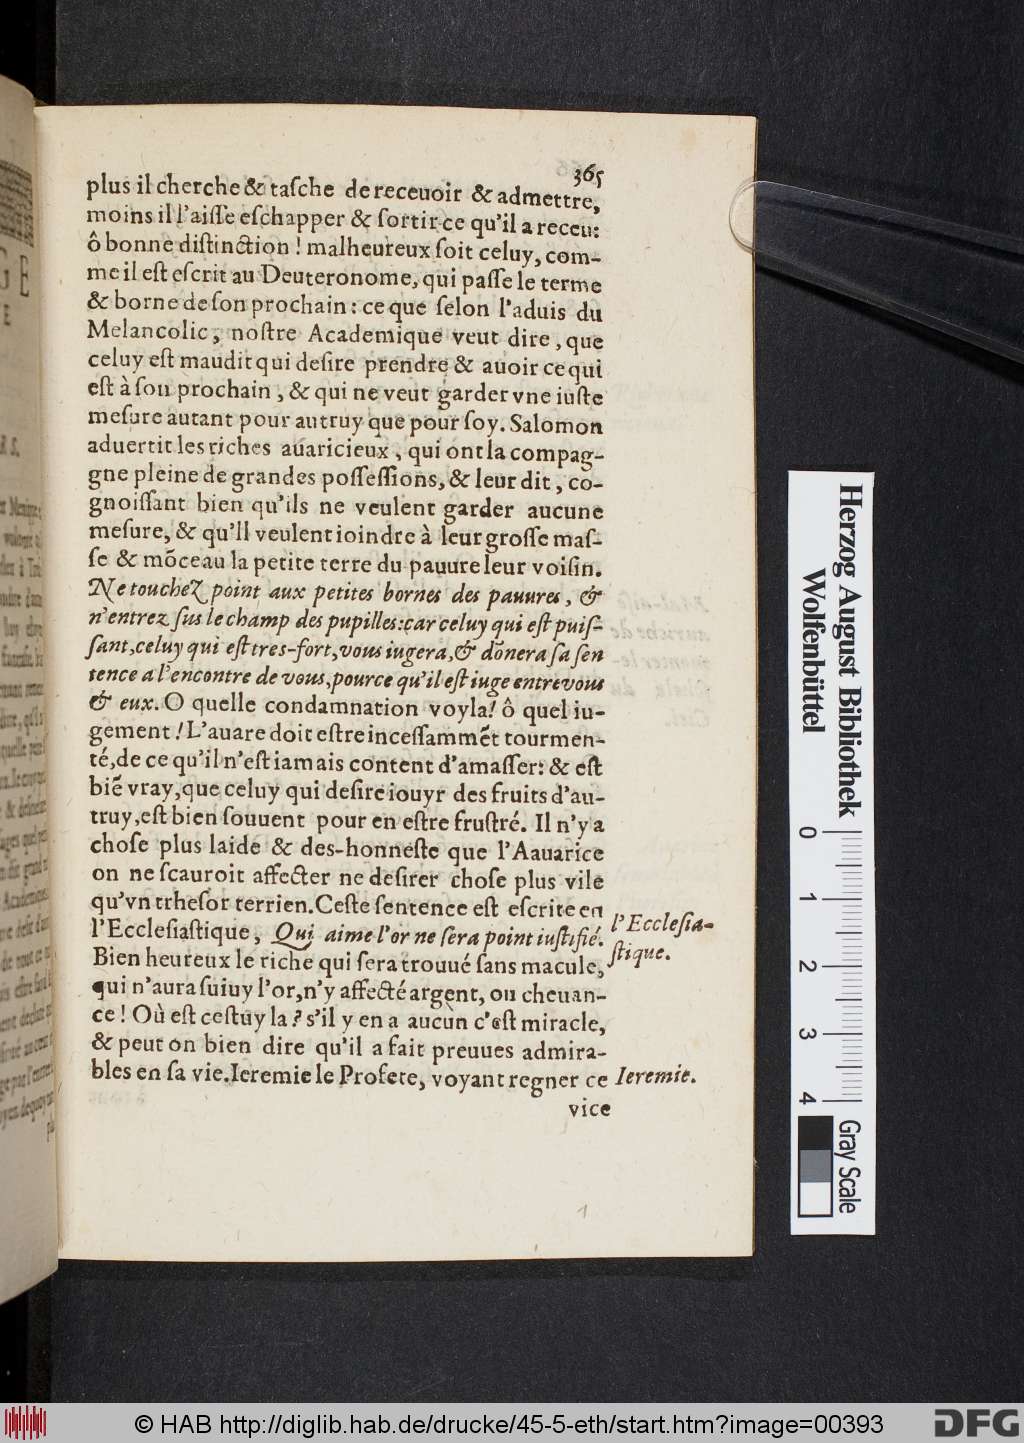 365
plus il cherche & taſche de receuoir & admettre,
moins il l'aiſſe eſchapper & ſortir ce qu'il a receu:
ô bonne diſtinction ! malheureux ſoit celuy, com-
me il eſt eſcrit au Deuteronome, qui paſſe le terme
& borne de ſon prochain : ce que ſelon l'aduis du
Melancolic, noſtre Academique veut dire, que
celuy eſt maudit qui deſire prendre & auoir ce qui
eſt à ſon prochain, & qui ne veut garder vne iuſte
meſure autant pour autruy que pour ſoy. Salomon
aduertit les riches auaricieux, qui ont la compag-
gne pleine de grandes poſſeſſions, & leur dit, co-
gnoiſſant bien qu'ils ne veulent garder aucune
meſure, & qu'Il veulent ioindre à leur groſſe maſ-
ſe & mõceau la petite terre du pauure leur voiſin.
Ne touchez point aux petites bornes des pauures, &
n'entrez ſus le champ des pupilles: car celuy qui eſt puiſ-
ſant, celuy qui eſt tres-fort, vous iugera, & dõnera ſa ſen
tence a l'encontre de vous, pource qu'il eſt iuge entre vous
& eux. O quelle condamnation voyla! ô quel iu-
gement ! L'auare doit eſtre inceſſammẽt tourmen-
té, de ce qu'il n'eſt iamais content d'amaſſer: & eſt
biẽ vray, que celuy qui deſire iouyr des fruits d'au-
truy, eſt bien ſouuent pour en eſtre fruſtré. Il n'y a
choſe plus laide & des-honneſte que l'Aauarice
on ne ſcauroit affecter ne deſirer choſe plus vile
qu'vn trheſor terrien. Ceſte ſentence eſt eſcrite en
l'Eccleſiaſtique, Qui aime l'or ne ſera point iuſtifié.
l'Eccleſia-
ſtique.
Bien heureux le riche qui ſera trouué ſans macule,
qui n'aura ſuiuy l'or, n'y affecté argent, ou cheuan-
ce ! Où eſt ceſtuy la ? s'il y en a aucun c'eſt miracle,
& peut on bien dire qu'il a fait preuues admira-
bles en ſa vie. Ieremie le Profete, voyant regner ce
Ieremie.
vice
Herzog August Bibliothek
Wolfenbüttel
0 1 2 3 4
Gray Scale
© HAB http://diglib.hab.de/drucke/45-5-eth/start.htm?image=00393
DFG